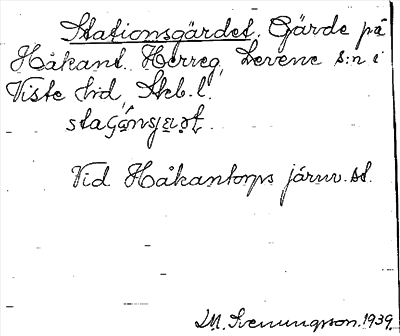 Stationsgärdet. Gärde på
Håkant. Herreg, Levene s:n i
Viste hrd, Skb. l.
Vid Håkantorps järnv. st.
I.M. Svenungsson. 1939.